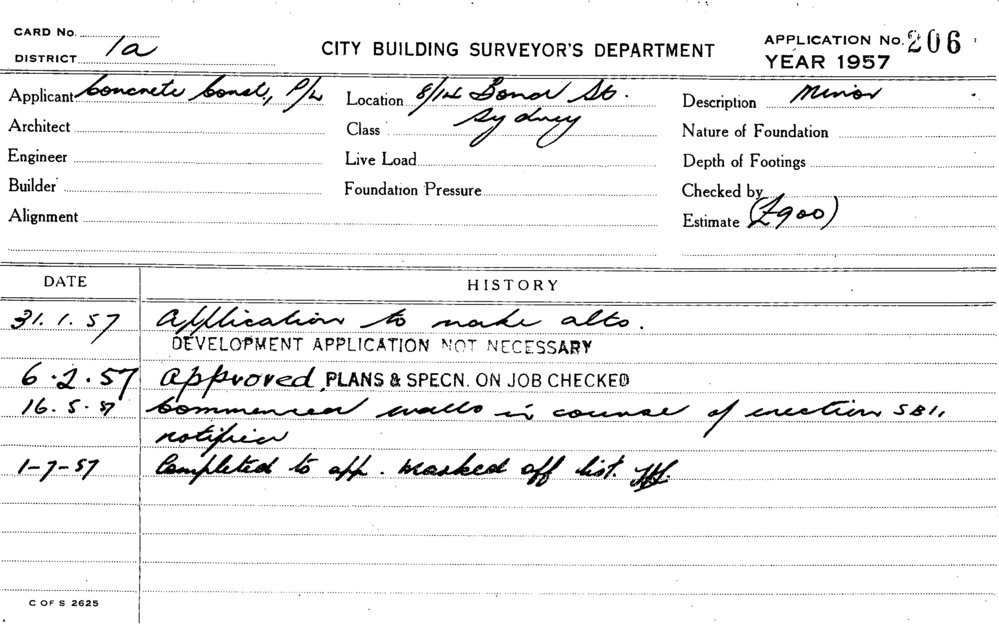 CARD No.
DISTRICT 1a
CITY BUILDING SURVEYOR'S DEPARTMENT
APPLICATION No. 206
YEAR 1957
Applicant Concrete Const, P/L
Location 8/14 Bond St.
Sydney
Description Minor
Architect
Class
Nature of Foundation
Engineer
Live Load
Depth of Footings
Builder
Foundation Pressure
Checked by
Alignment
Estimate (£900)
DATE HISTORY
31.1.57 Application to make alts.
DEVELOPMENT APPLICATION NOT NECESSARY
6.2.57 Approved, PLANS & SPECN. ON JOB CHECKED
16.5.57 Commenced walls in course of erection SBI,
notified
1-7-57 Completed to app. marked off list.
C OF S 2625